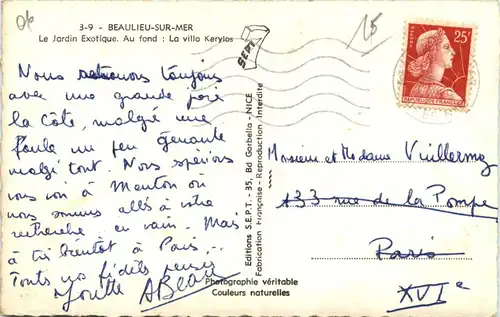 3-9 - BEAULIEU-SUR-MER
Le Jardin Exotique. Au fond : La villa Kerylos
SEPT
Nous retrouvons toujours
avec une grande joie
la Côte, malgré une
foule un peu gênante
malgré tout. Nous espérions
vous voir à Menton où
nous sommes allés à votre
recherche en vain. Mais
à très bientôt à Paris...
Toutes nos fidèles pensées
Editions S.E.P.T. - 35, Bd Gorbella - NICE
Fabrication Française - Reproduction Interdite
Photographie véritable
Couleurs naturelles
15
25F
POSTES
REPUBLIQUE FRANÇAISE
Monsieur et Madame Vuillermoz
133 rue de la Pompe
Paris
XVIe